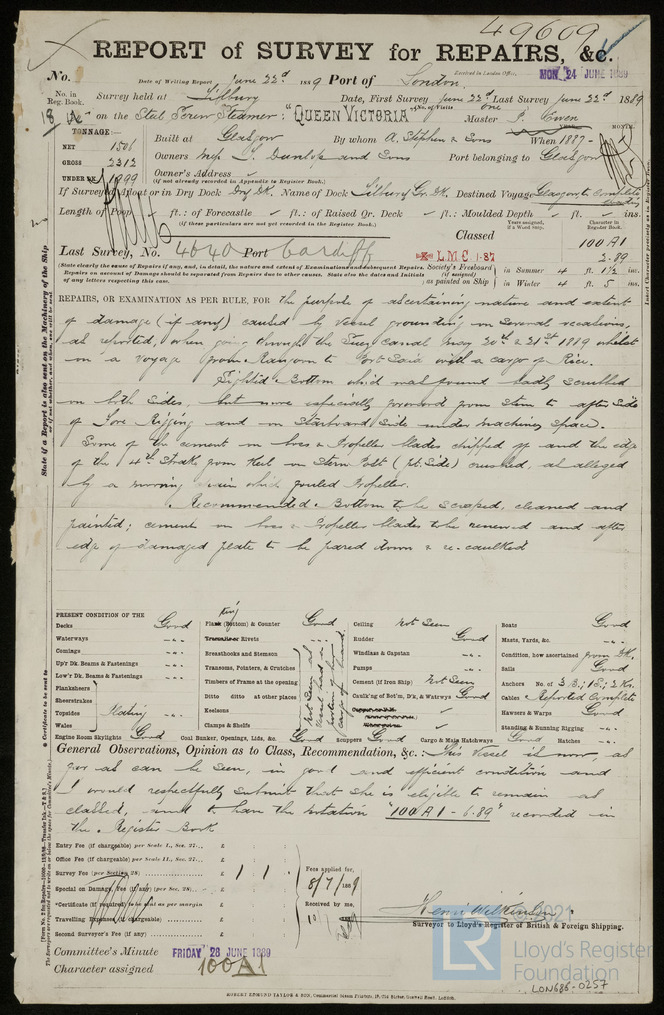 49609
REPORT of SURVEY for REPAIRS, &c.
No. Date of Writing Report June 22d 1889 Port of London Received in London Office, MON. 24 JUNE 1889
No. in Reg. Book. Survey held at Tilbury Date, First Survey June 22d Last Survey June 22d 1889
No. of Visits one
on the Steel Screw Steamer "QUEEN VICTORIA" Master Owen
TONNAGE:
NET 1506
GROSS 2312
UNDER DK 1999
Built at Glasgow By whom A. Stephen & Sons When 1887 MONTH
Owners Mess. Dunlop and Sons Port belonging to Glasgow
Owner's Address
(if not already recorded in Appendix to Register Book.)
If Surveyed Afloat or in Dry Dock Dry Dk. Name of Dock Tilbury Gr. Dk. Destined Voyage Glasgow to Complete
Length of Poop ft.: of Forecastle ft.: of Raised Qr. Deck ft.: Moulded Depth ft. ins.
(if these particulars are not yet recorded in the Register Book.)
Classed
Years assigned, if a Wood Vessel.
Character in Register Book.
100 A1
2.89
Last Survey, No. 4040 Port Cardiff
LMC 1-87
(State clearly the cause of Repairs if any, and, in detail, the nature and extent of Examinations and subsequent Repairs.
Reports on account of Damage should be separated from Repairs due to other causes. State also the dates and Initials
of any letters respecting this case.
Society's Freeboard (if assigned) as painted on Ship
in Summer 4 ft. 1½ ins.
in Winter 4 ft. 5 ins.
REPAIRS, OR EXAMINATION AS PER RULE, FOR the purpose of ascertaining nature and extent
of damage (if any) caused by vessel grounding on several occasions,
as reported, when going through the Suez Canal May 20th & 21st 1889 whilst
on a voyage from Rangoon to Port Said with a cargo of Rice.
Sighted Bottom which was found badly scrubbed
on both sides, but more especially forward from Stem to after side
of Fore Rigging and on Starboard side under machinery space.
Some of the cement on boss & Propeller blades chipped off and the edge
of the 4th Strake from Keel on Stern Post (pt. side) crushed, as alleged
by a mooring chain which fouled Propeller.
Recommended. Bottom to be scraped, cleaned and
painted; cement on boss & Propeller blades to be renewed and after
edge of damaged plate to be pared down & re-caulked
PRESENT CONDITION OF THE
Decks Good
Waterways
Comings
Up'r Dk. Beams & Fastenings
Low'r Dk. Beams & Fastenings
Planksheers
Sheerstrakes
Topsides Plating
Wales
Engine Room Skylights Good
Plank (Bottom) & Counter Good
Treenails or Rivets
Breasthooks and Stemson
Transoms, Pointers, & Crutches
Timbers of Frame at the opening
Ditto ditto at other places
Keelsons
Clamps & Shelfs
Coal Bunker, Openings, Lids, &c. Good
Ceiling Not Seen
Rudder Good
Windlass & Capstan
Pumps
Cement (if Iron Ship) Not Seen
Caulk'ng of Bot'm, D'ks, & Watrwys Good
Scuppers Good Cargo & Main Hatchways Good Hatches
Boats Good
Masts, Yards, &c. Good
Condition, how ascertained from Dk.
Sails Good
Anchors No. of 3 B.; 1 S.; 2 Ks.
Cables Reported Complete
Hawsers & Warps Good
Standing & Running Rigging
General Observations, Opinion as to Class, Recommendation, &c.: This Vessel is now, as
far as can be seen, in good and efficient condition and
I would respectfully submit that she is eligible to remain as
classed, and to have the notation "100 A1 - 6.89" recorded in
the Register Book
Entry Fee (if chargeable) per Scale I., Sec. 27 £
Office Fee (if chargeable) per Scale II., Sec. 27 £
Survey Fee (per Section 28) £ 1 1
Special on Damage, Fee (if any) (per Sec. 28) £
*Certificate (if required) to be sent as per margin £
Travelling Expenses (if chargeable) £
Second Surveyor's Fee (if any) £
Fees applied for,
8/7/1889
Received by me,
Henri Wilkinson
Surveyor to Lloyd's Register of British & Foreign Shipping.
Committee's Minute FRIDAY 28 JUNE 1889
Character assigned 100A1
© 2021
LR
Lloyd's Register
Foundation
LON686-0257
ROBERT EDMUND TAYLOR & SON, Commercial Steam Printers, 19, Old Street, Goswell Road, London.
State if a Report is also sent on the Machinery of the Ship